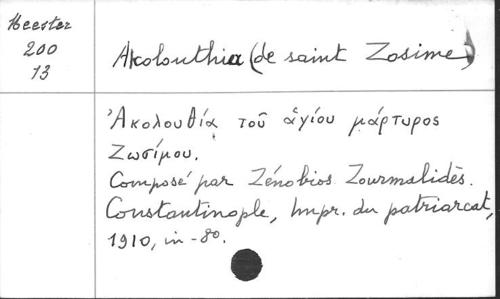 Heester
200
13
Akolouthia (de saint Zosime)
Ἀκολουθία τοῦ ἁγίου μάρτυρος
Ζωσίμου.
Composé par Zénobios Zourmalidès.
Constantinople, Impr. du patriarcat,
1910, in-8o.